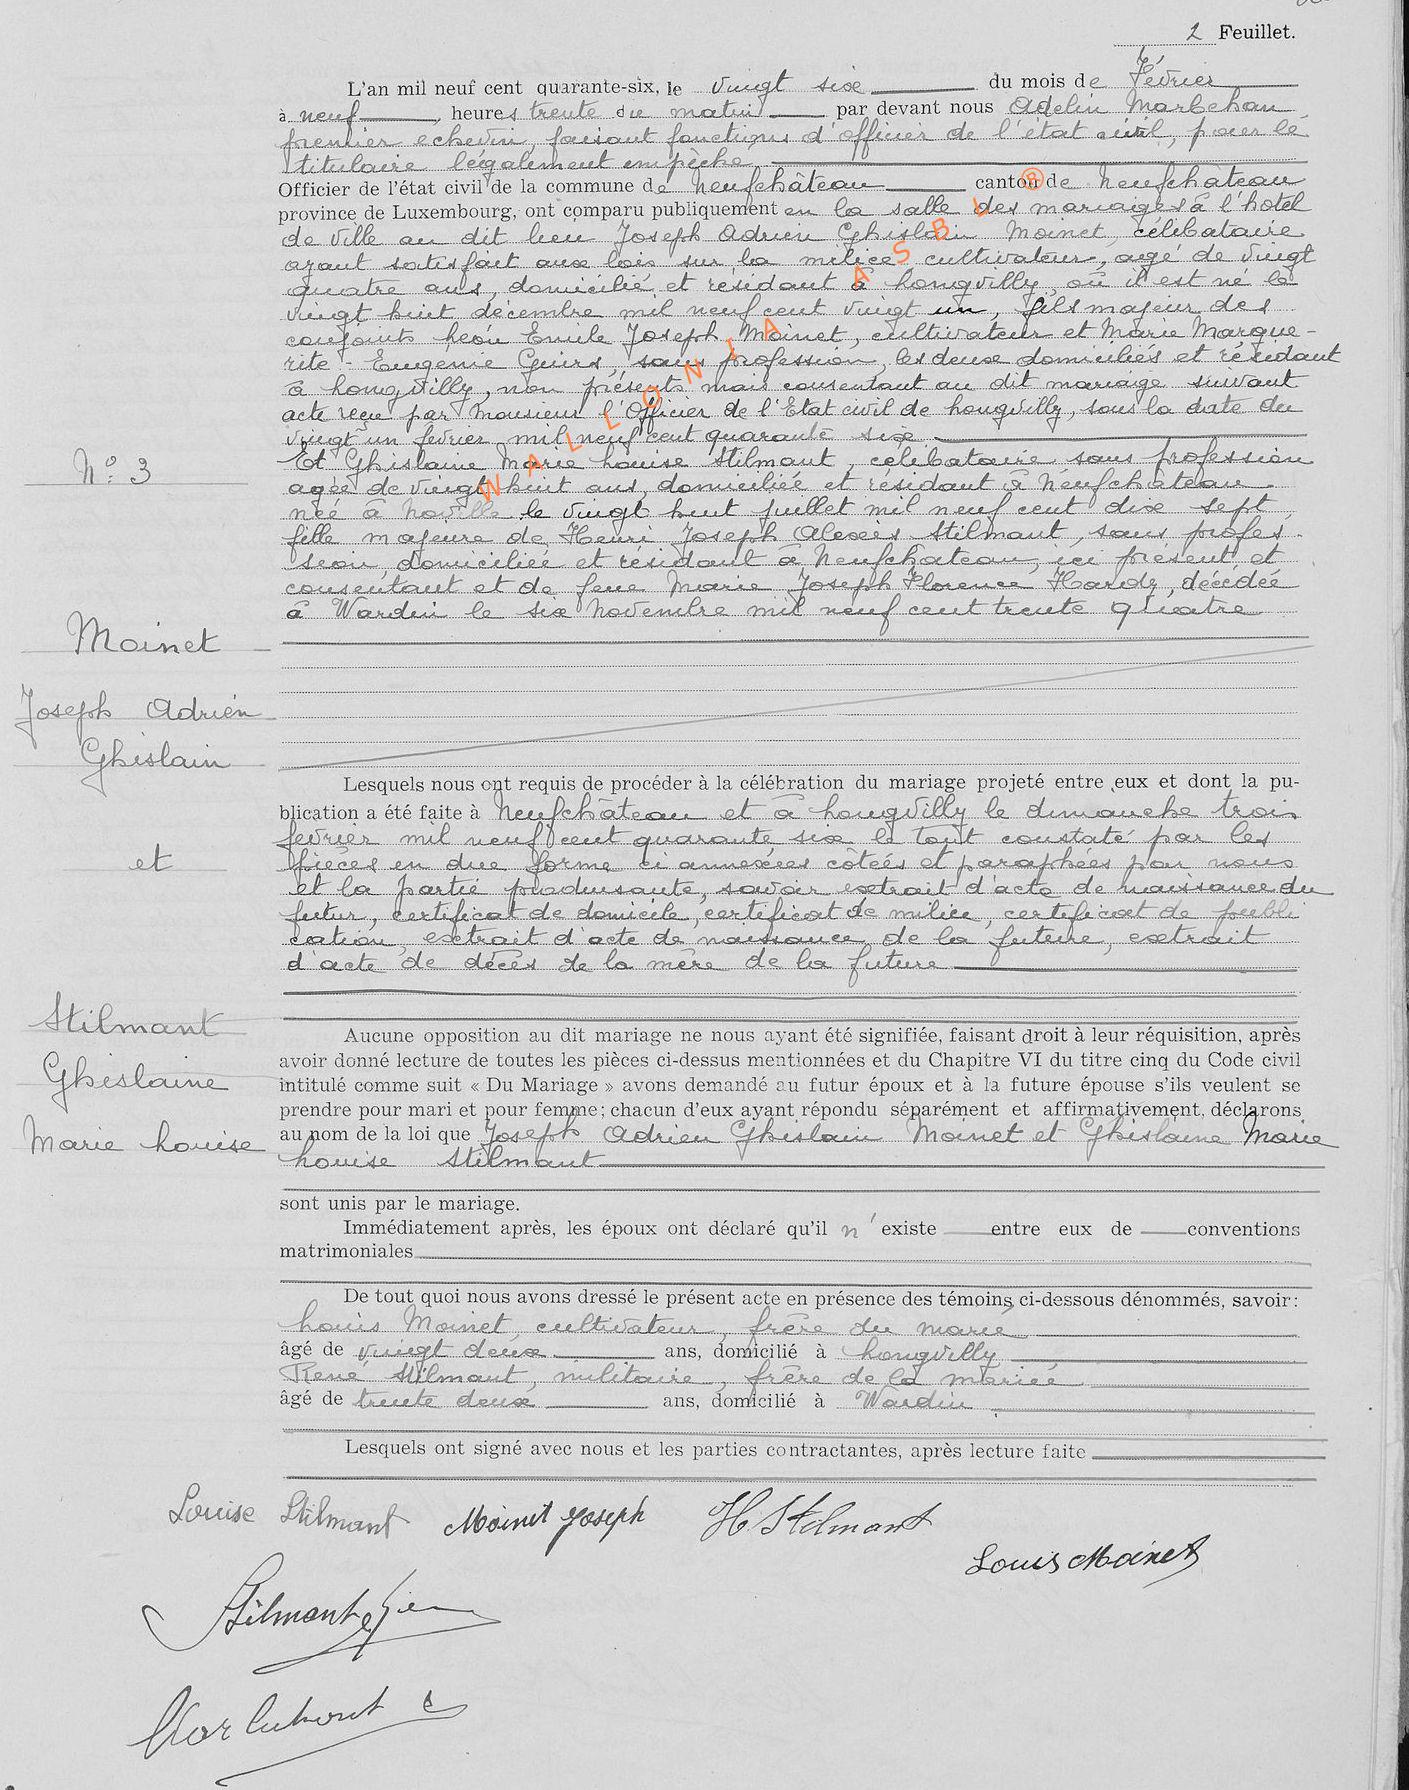 2 Feuillet.
L'an mil neuf cent quarante-six, le vingt six du mois de Février
à neuf heures trente du matin par devant nous Adelin Marbehan
premier echevin, faisant fonctions d'officier de l'état civil, pour le
titulaire légalement empêché
Officier de l'état civil de la commune de Neufchâteau canton de Neufchâteau
province de Luxembourg, ont comparu publiquement en la salle des mariages à l'hotel
de Ville au dit lieu Joseph Adrien Ghislain Moinet, célibataire
ayant satisfait aux lois sur la milice cultivateur, agé de vingt
quatre ans, domicilié et résidant à Longvilly, où il est né le
vingt huit décembre mil neuf cent vingt un, fils majeur des
conjoints Léon Emile Joseph Moinet, cultivateur et Marie Margue-
rite Eugénie Guirs, sans profession, les deux domiciliés et résidant
à Longvilly, non présents mais consentant au dit mariage suivant
acte reçu par Monsieur l'Officier de l'Etat civil de Longvilly, sous la date du
vingt un fevrier mil neuf cent quarante six
Et Ghislaine Marie Louise Stilmant, célibataire sans profession
N° 3
agée de vingt huit ans, domiciliée et résidant à Neufchâteau
née à Noville le vingt huit juillet mil neuf cent dix sept
fille majeure de Henri Joseph Alexis Stilmant, sans profes-
sion, domiciliée et résidant à Neufchateau, ici présent et
consentant et de feue Marie Joseph Florence Hardy, décédée
à Wardin le six Novembre mil neuf cent trente quatre
Moinet
Joseph Adrien
Ghislain
Lesquels nous ont requis de procéder à la célébration du mariage projeté entre eux et dont la pu-
blication a été faite à Neufchâteau et à Longvilly le dimanche trois
fevrier mil neuf cent quarante six le tout constaté par les
et
pièces en due forme ci annexées côtéés et paraphées par nous
et la partie produisante, savoir extrait d'acte de naissance du
futur, certificat de domicile, certificat de milice, certificat de publi
cation, extrait d'acte de naissance de la future, extrait
d'acte de décès de la mère de la future
Stilmant
Ghislaine
Marie Louise
Aucune opposition au dit mariage ne nous ayant été signifiée, faisant droit à leur réquisition, après
avoir donné lecture de toutes les pièces ci-dessus mentionnées et du Chapitre VI du titre cinq du Code civil
intitulé comme suit « Du Mariage » avons demandé au futur époux et à la future épouse s'ils veulent se
prendre pour mari et pour femme; chacun d'eux ayant répondu séparément et affirmativement, déclarons
au nom de la loi que Joseph Adrien Ghislain Moinet et Ghislaine Marie
Louise Stilmant
sont unis par le mariage.
Immédiatement après, les époux ont déclaré qu'il n'existe entre eux de conventions
matrimoniales
De tout quoi nous avons dressé le présent acte en présence des témoins ci-dessous dénommés, savoir:
Louis Moinet, cultivateur, frère du marié
âgé de vingt deux ans, domicilié à Longvilly
René Stilmant, militaire, frère de la mariée
âgé de trente deux ans, domicilié à Wardin
Lesquels ont signé avec nous et les parties contractantes, après lecture faite
Louise Stilmant Moinet Joseph H Stilmant
Louis Moinet
Stilmant
WALLONIA ASBL ®